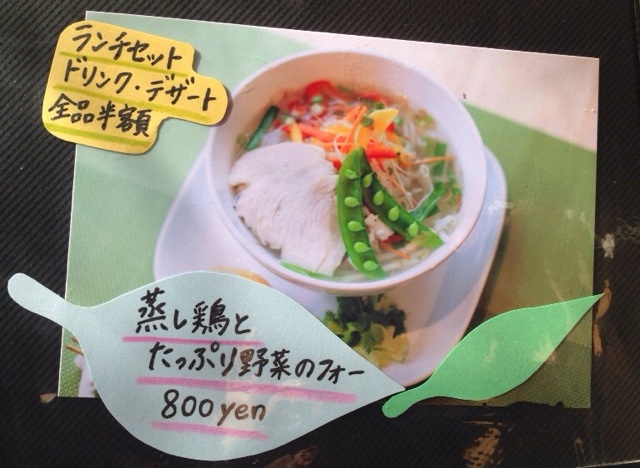 ランチセット
ドリンク・デザート
全品半額
蒸し鶏と
たっぷり野菜のフォー
800yen